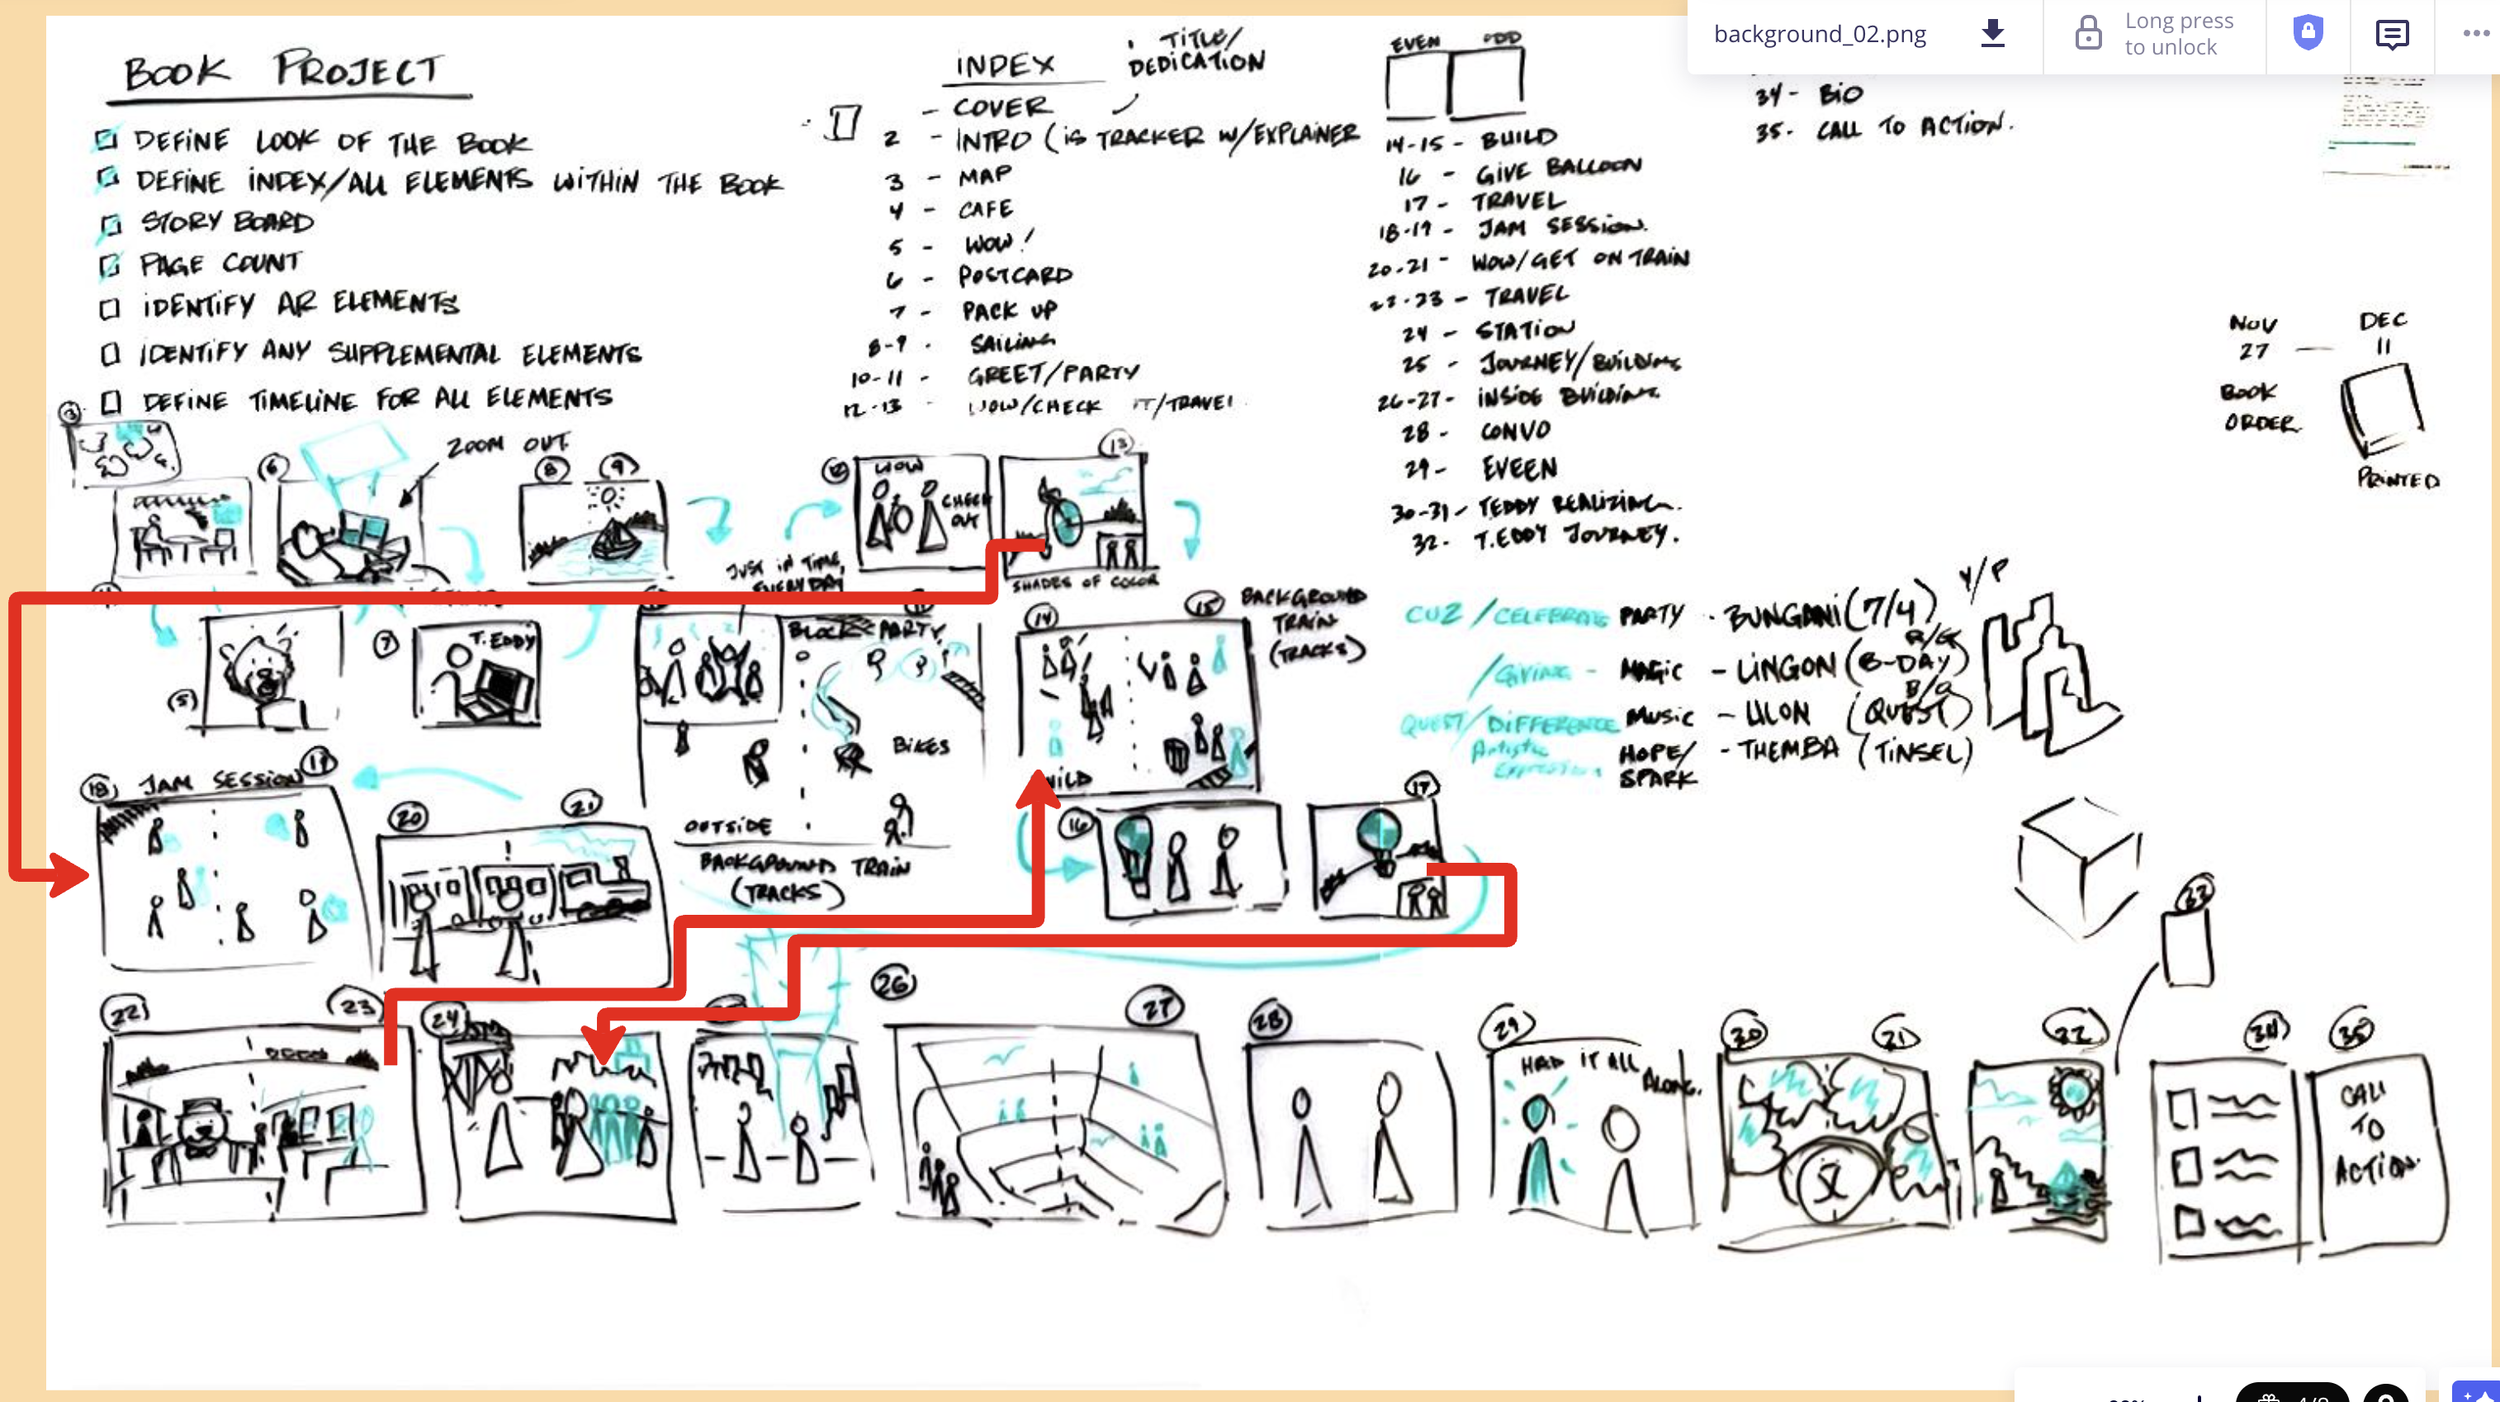 background_02.png
Long press
to unlock
BOOK PROJECT
DEFINE LOOK OF THE BOOK
DEFINE INDEX/ALL ELEMENTS WITHIN THE BOOK
STORY BOARD
PAGE COUNT
IDENTIFY AR ELEMENTS
IDENTIFY ANY SUPPLEMENTAL ELEMENTS
DEFINE TIMELINE FOR ALL ELEMENTS
INDEX
TITLE/
DEDICATION
- COVER
2 - INTRO (IS TRACKER W/EXPLAINER
3 - MAP
4 - CAFE
5 - WOW!
6 - POSTCARD
7 - PACK UP
8-9 - SAILING
10-11 - GREET/PARTY
12-13 - WOW/CHECK IT/TRAVEL
EVEN ODD
14-15 - BUILD
16 - GIVE BALLOON
17 - TRAVEL
18-19 - JAM SESSION.
20-21 - WOW/GET ON TRAIN
22-23 - TRAVEL
24 - STATION
25 - JOURNEY/BUILDING
26-27 - INSIDE BUILDING.
28 - CONVO
29 - EVEEN
30-31 - TEDDY REALIZING.
32 - T.EDDY JOURNEY.
34 - BIO
35 - CALL TO ACTION.
NOV DEC
27 — 11
BOOK
ORDER.
PRINTED
3
6
ZOOM OUT.
8 9
12
WOW
CHECK
OUT
13
SHADES OF COLOR
JUST IN TIME,
EVERYDAY
5
7
T.EDDY
BLOCK PARTY
BIKES
OUTSIDE
BACKGROUND TRAIN
(TRACKS)
14 15
BACKGROUND
TRAIN
(TRACKS)
WILD
CUZ /CELEBRATE PARTY - BUNGANI (7/4) Y/P
R/G
/GIVING - MAGIC - LINGON (B-DAY)
B/O
QUEST/DIFFERENCE MUSIC - ULON (QUEST)
Artistic
Expression
HOPE/
SPARK
- THEMBA (TINSEL)
18 JAM SESSION 19
20 21
16
17
22 23
24
26
27
28
29
HAD IT ALL
ALONG.
30 31
32
33
34
35
CALL
TO
ACTION.